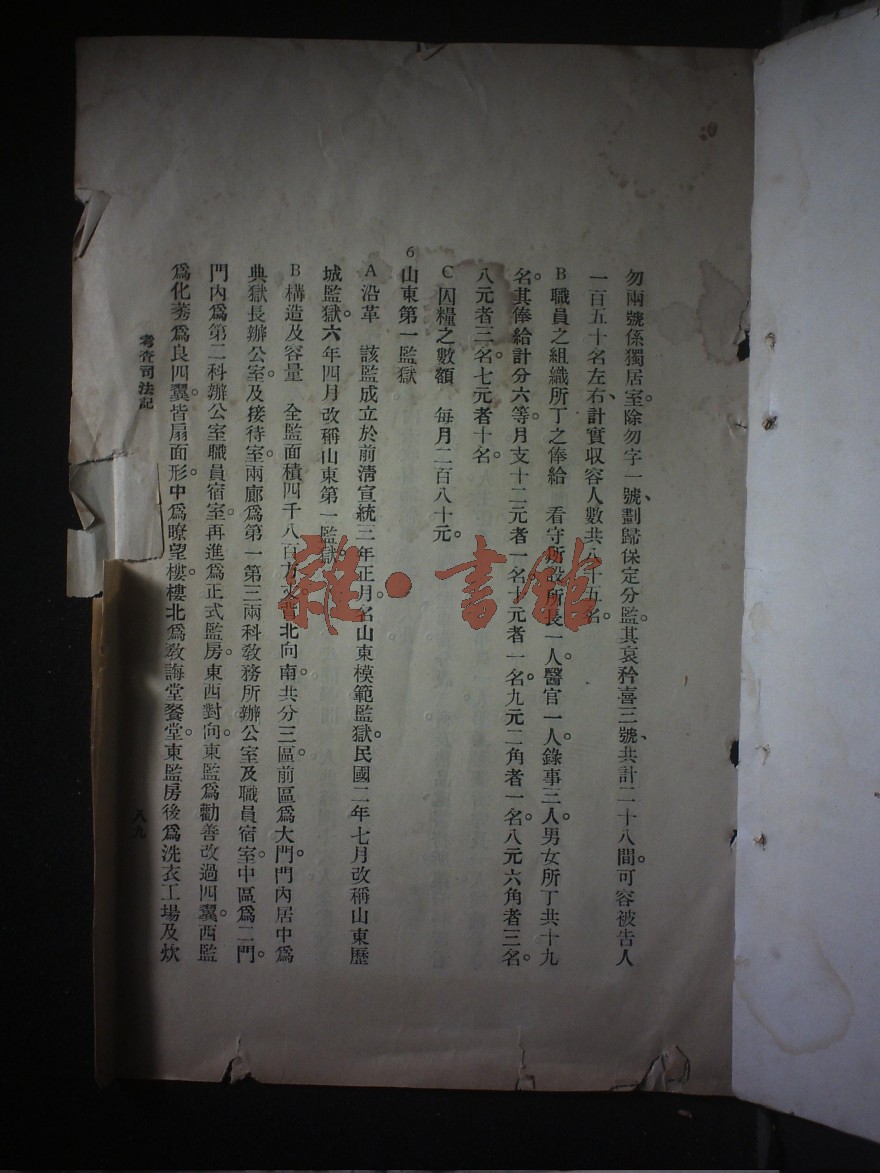 勿兩號係獨居室。除勿字一號、劃歸保定分監。其哀矜喜三號、共計二十八間。可容被告人
一百五十名左右、計實収容人數共八十五名。
B 職員之組織所丁之俸給 看守所設所長一人。醫官一人。錄事三人。男女所丁共十九
名。其俸給計分六等。月支十二元者一名。十元者一名。九元二角者一名。八元六角者三名。
八元者三名。七元者十名。
C 囚糧之數額 每月二百八十元。
6 山東第一監獄
A 沿革 該監成立於前淸宣統三年正月。名山東模範監獄。民國二年七月改稱山東歷
城監獄。六年四月改稱山東第一監獄。
B 構造及容量 全監面積四千八百方丈。背北向南。共分三區。前區爲大門。門內居中爲
典獄長辦公室。及接待室。兩廊爲第一第三兩科敎務所辦公室及職員宿室。中區爲二門。
門內爲第二科辦公室職員宿室。再進爲正式監房。東西對向。東監爲勸善改過四翼。西監
爲化莠爲良四翼。皆扇面形。中爲暸望樓。樓北爲敎誨堂餐堂。東監房後爲洗衣工場及炊
考查司法記
八九
雜·書館